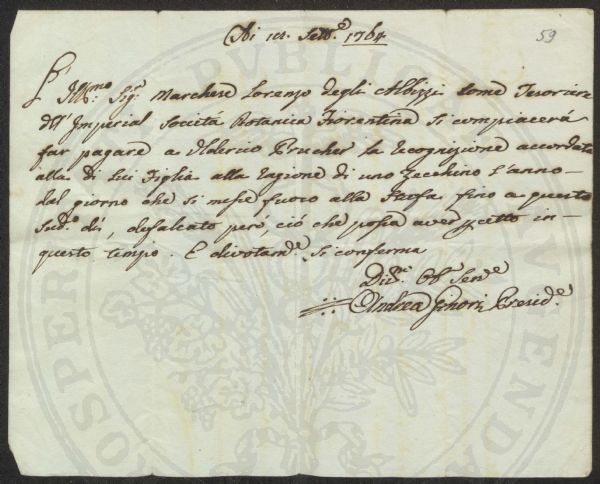 Adì 14. Sett.e 1764.
59
L' Ill.mo Sig.r Marchese Lorenzo degli Albizzi come Tesoriere
dell' Imperial Società Botanica Fiorentina si compiacerà
far pagare a Valerio Brucher la recognizione accordata
alla di lui Figlia alla ragione di uno Zecchino l'anno
dal giorno che si messe fuoco alla Stufa fino a questo
sud.o dì, defalcato però, ciò che possa aver in
questo tempo. E divotam.e si conferma
Div.mo Ob. Serv.e
Andrea Ginori Presid.e